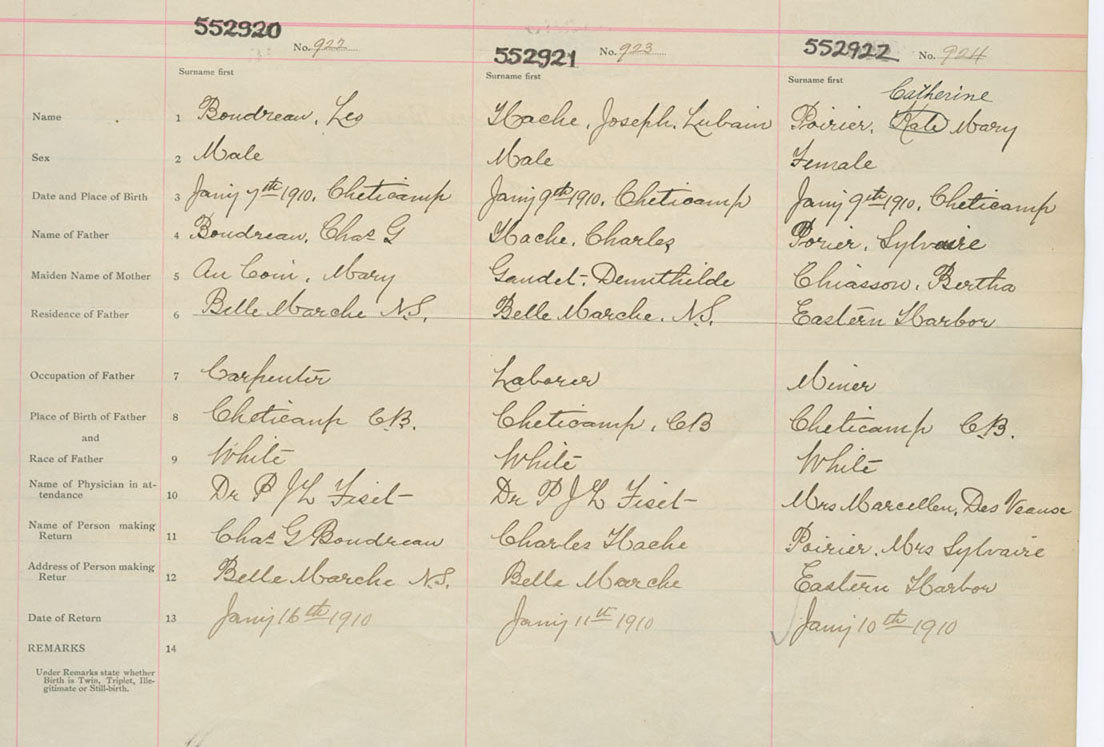 552920 No. 922 552921 No. 923 552922 No. 924
Surname first Surname first Surname first
Catherine
Name 1 Boudreau, Leo Hache, Joseph, Lubain Poirier, Kate Mary
Sex 2 Male Male Female
Date and Place of Birth 3 Jany 7th 1910, Cheticamp Jany 9th 1910, Cheticamp Jany 9th 1910, Cheticamp
Name of Father 4 Boudreau, Chas G Hache, Charles Porier, Sylvaire
Maiden Name of Mother 5 Au Coin, Mary Gaudet, Chiasson, Bertha
Residence of Father 6 Belle Marche N.S. Belle Marche, N.S. Eastern Harbor
Occupation of Father 7 Carpenter Laborer Miner
Place of Birth of Father 8 Cheticamp C.B. Cheticamp, CB Cheticamp C.B.
and
Race of Father 9 White White White
Name of Physician in at-
tendance 10 Dr P J L Fiset Dr P J L Fiset Mrs Marcellen, Des Veause
Name of Person making
Return 11 Chas G Boudreau Charles Hache Poirier, Mrs Sylvaire
Address of Person making
Retur 12 Belle Marche N.S. Belle Marche Eastern Harbor
Date of Return 13 Jany 16th 1910 Jany 11th 1910 Jany 10th 1910
REMARKS 14
Under Remarks state whether
Birth is Twin, Triplet, Ille-
gitimate or Still-birth.